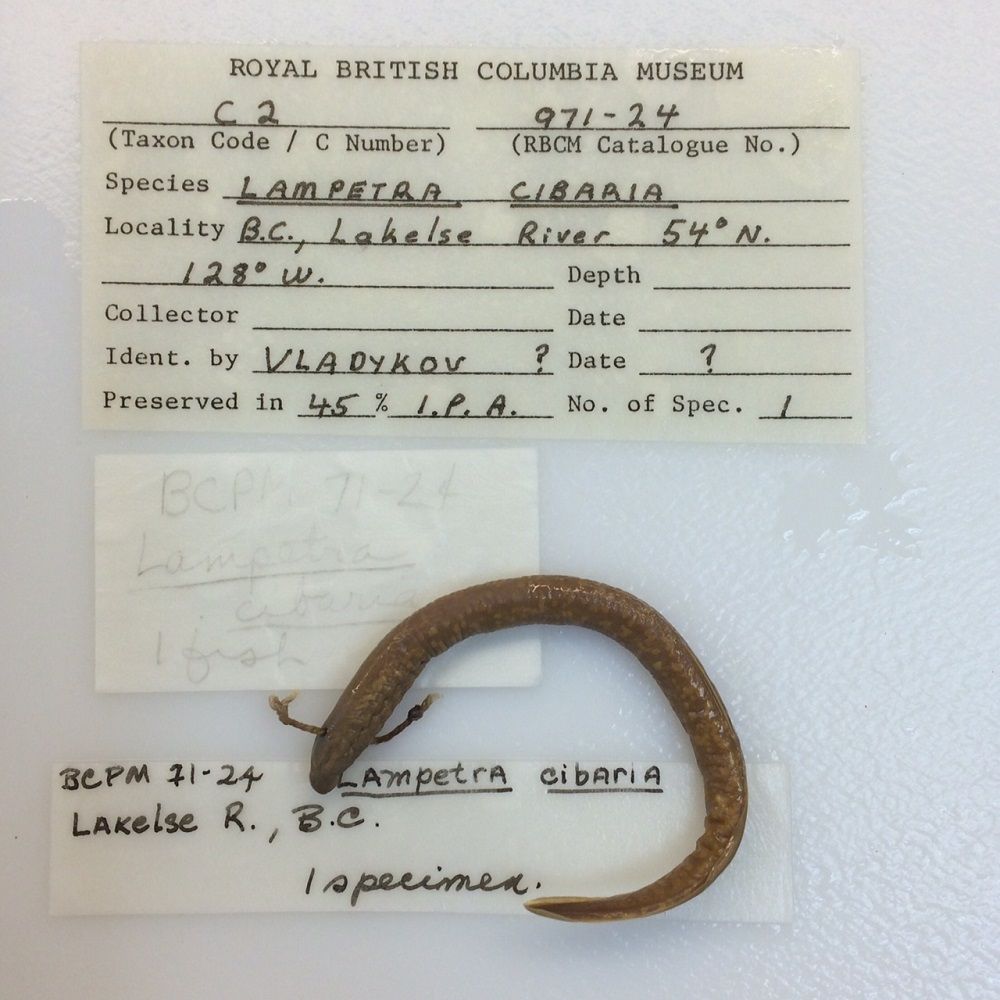 ROYAL BRITISH COLUMBIA MUSEUM
C2 971-24
(Taxon Code / C Number) (RBCM Catalogue No.)
Species LAMPETRA CIBARIA
Locality B.C., Lakelse River 54° N.
128° W. Depth
Collector Date
Ident. by VLADYKOV ? Date ?
Preserved in 45 % I.P.A. No. of Spec. 1
BCPM 71-24
Lampetra
cibaria
1 fish
BCPM 71-24 Lampetra cibaria
Lakelse R., B.C.
1 specimen.